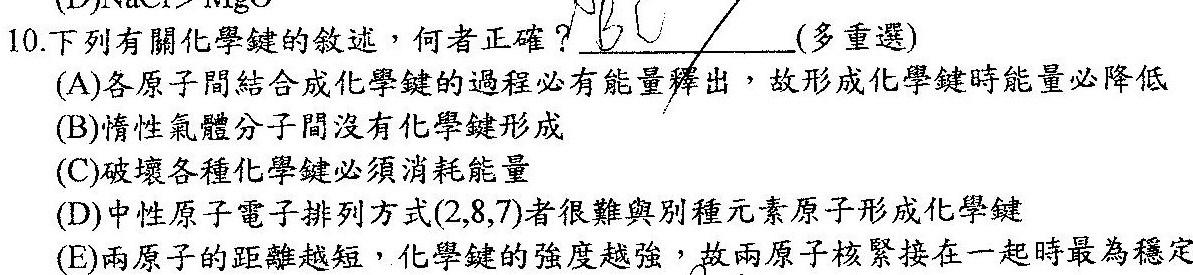 (D)NaCl > MgO
10.下列有關化學鍵的敘述，何者正確？ BC (多重選)
(A)各原子間結合成化學鍵的過程必有能量釋出，故形成化學鍵時能量必降低
(B)惰性氣體分子間沒有化學鍵形成
(C)破壞各種化學鍵必須消耗能量
(D)中性原子電子排列方式(2,8,7)者很難與別種元素原子形成化學鍵
(E)兩原子的距離越短，化學鍵的強度越強，故兩原子核緊接在一起時最為穩定